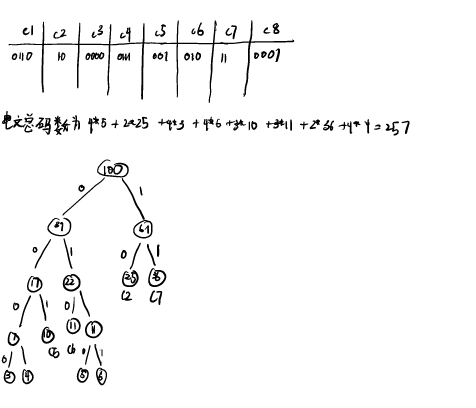 c1 c2 c3 c4 c5 c6 c7 c8
0110 10 0000 0111 001 010 11 0001
电文总码数为 4*5+2*25+4*3+4*6+3*10+3*11+2*36+4*4=257
100
0 1
39 61
0 1 0 1
17 22 25 36
c2 c7
0 1 0 1
7 10 11 11
c5 c6
0 1 0 1
3 4 5 6